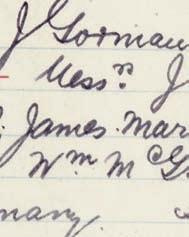 J Gorman
Messrs. J
James Mar
Wm. McG
many.